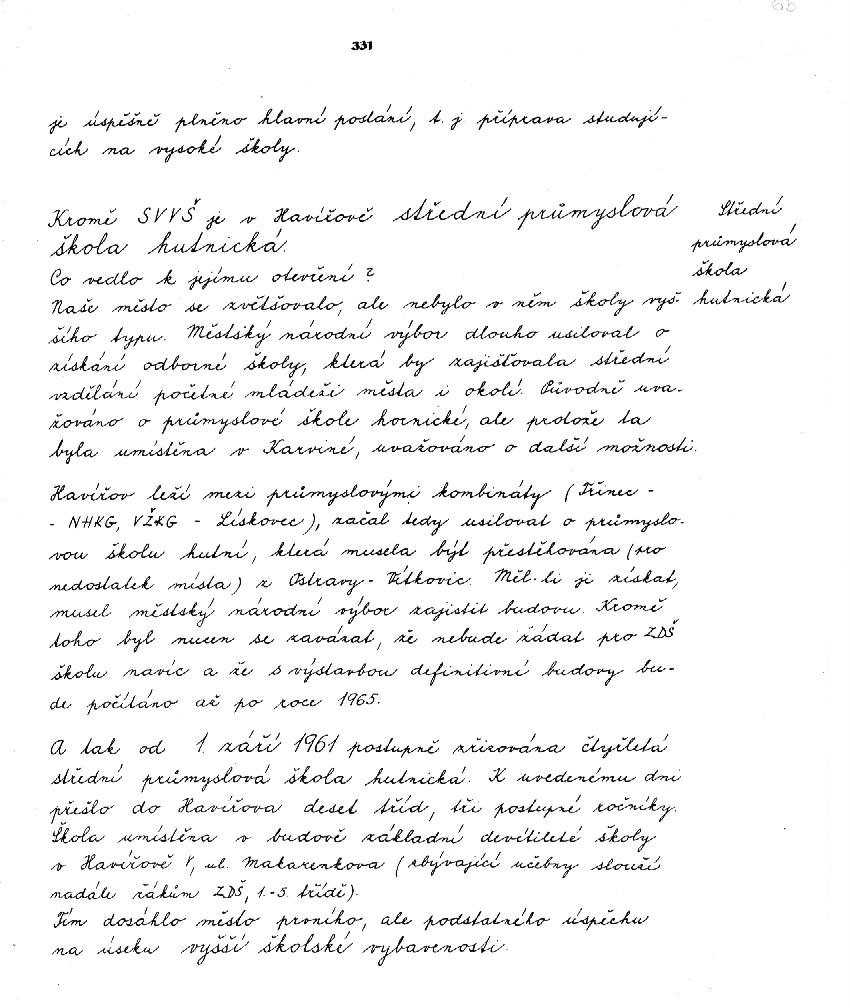 65
331
je úspěšně plněno hlavní poslání, t. j. příprava studují-
cích na vysoké školy.
Kromě SVVŠ je v Havířově střední průmyslová
škola hutnická.
Střední
průmyslová
škola
hutnická
Co vedlo k jejímu otevření ?
Naše město se zvětšovalo, ale nebylo v něm školy vyš-
šího typu. Městský národní výbor dlouho usiloval o
získání odborné školy, která by zajišťovala střední
vzdělání početné mládeži města i okolí. Původně uva-
žováno o průmyslové škole hornické, ale protože ta
byla umístěna v Karviné, uvažováno o další možnosti.
Havířov leží mezi průmyslovými kombináty (Třinec -
- NHKG, VŽKG - Lískovec), začal tedy usilovat o průmyslo-
vou školu hutní, která musela být přestěhována (pro
nedostatek místa) z Ostravy - Vítkovic. Měl-li ji získat,
musel městský národní výbor zajistit budovu. Kromě
toho byl nucen se zavázat, že nebude žádat pro ZDŠ
školu navíc a že s výstavbou definitivní budovy bu-
de počítáno až po roce 1965.
A tak od 1. září 1961 postupně zřizována čtyřletá
střední průmyslová škola hutnická. K uvedenému dni
přešlo do Havířova deset tříd, tři postupné ročníky.
Škola umístěna v budově základní devítileté školy
v Havířově V, ul. Makarenkova (zbývající učebny slouží
nadále žákům ZDŠ, 1.-5. třídě).
Tím dosáhlo město prvního, ale podstatného úspěchu
na úseku vyšší školské vybavenosti.